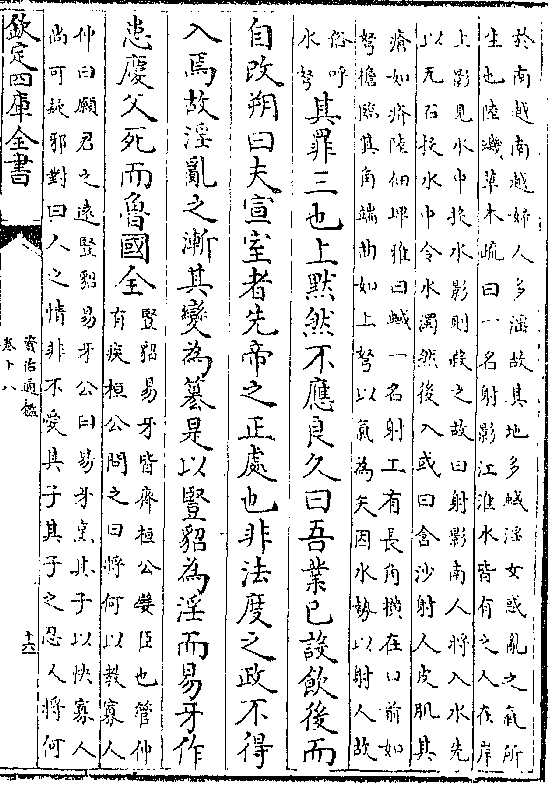 於南越南越婦人多淫故其地多蜮淫女惑亂之氣所
生也陸璣草木疏曰一名射影江淮水皆有之人在岸
上影見水中投水影則殺之故曰射影南人將入水先
以瓦石投水中令水濁然後入或曰含沙射人皮肌其
瘡如疥陸佃埤雅曰蜮一名射工有長角横在口前如
弩檐臨其角端曲如上弩以氣為矢因水勢以射人故
俗呼
水弩
其罪三也上默然不應良久曰吾業已設飲後而
自改朔曰夫宣室者先帝之正處也非法度之政不得
入焉故淫亂之漸其變為簒是以豎貂為淫而易牙作
患慶父死而魯國全
豎貂易牙皆齊桓公嬖臣也管仲
有疾桓公問之曰將何以教寡人
仲曰願君之遠豎貂易牙公曰易牙烹其子以快寡人
尚可疑邪對曰人之情非不愛其子其子之忍人將何
欽定四庫全書
資治通鑑
卷十八
十六